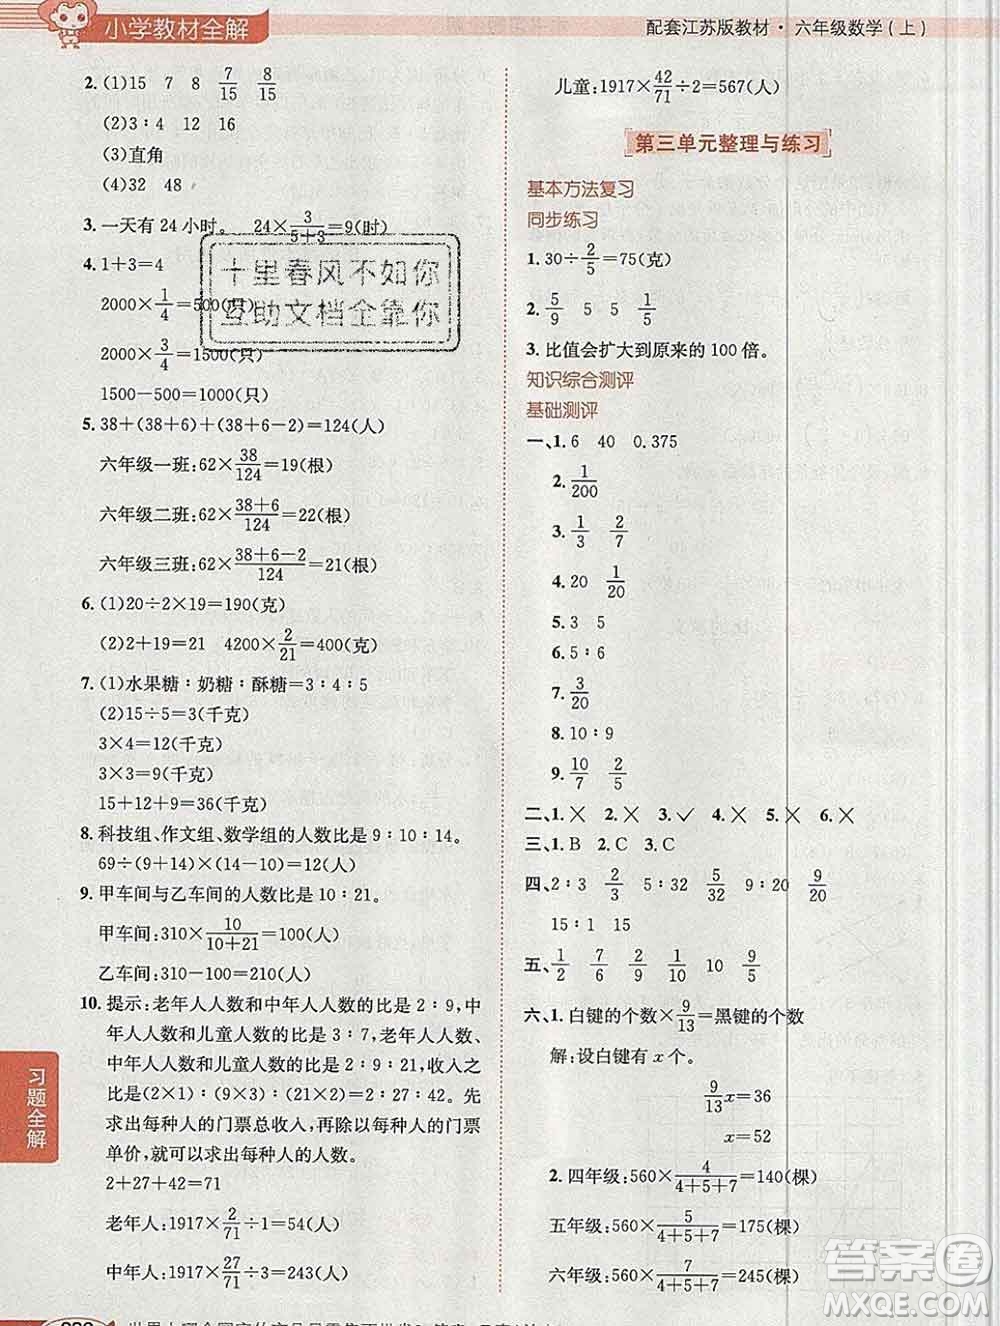 小学教材全解
配套江苏版教材·六年级数学(上)
2. (1)15 7 8 7/15 8/15
(2)3∶4 12 16
(3)直角
(4)32 48
3. 一天有 24 小时。 24×3/(5+3)=9(时)
4. 1+3=4
2000×1/4=500(只)
2000×3/4=1500(只)
1500-500=1000(只)
5. 38+(38+6)+(38+6-2)=124(人)
六年级一班:62×38/124=19(根)
六年级二班:62×(38+6)/124=22(根)
六年级三班:62×(38+6-2)/124=21(根)
6. (1)20÷2×19=190(克)
(2)2+19=21 4200×2/21=400(克)
7. (1)水果糖∶奶糖∶酥糖=3∶4∶5
(2)15÷5=3(千克)
3×4=12(千克)
3×3=9(千克)
15+12+9=36(千克)
8. 科技组、作文组、数学组的人数比是 9∶10∶14。
69÷(9+14)×(14-10)=12(人)
9. 甲车间与乙车间的人数比是 10∶21。
甲车间:310×10/(10+21)=100(人)
乙车间:310-100=210(人)
10. 提示:老年人人数和中年人人数的比是 2∶9,中
年人人数和儿童人数的比是 3∶7,老年人人数、
中年人人数和儿童人数的比是 2∶27∶42,收入之
比是(2×1)∶(9×3)∶(21×2)=2∶27∶42。先
求出每种人的门票总收入,再根据每种人的门票
单价,就可以求出每种人的人数。
2+27+42=71
老年人:1917×2/71÷1=54(人)
中年人:1917×27/71÷3=243(人)
儿童:1917×42/71÷2=567(人)
第三单元整理与练习
基本方法复习
同步练习
1. 30÷2/5=75(克)
2. 5/9 5 5/4
3. 比值会扩大到原来的 100 倍。
知识综合测评
基础测评
一、1. 6 40 0.375
2. 1/200
3. 1/3 2/7
4. 20 1/20
5. 3 5
6. 5∶6
7. 3/20
8. 10∶9
9. 10/7 2/5
二、1. × 2. × 3. ✓ 4. × 5. × 6. ×
三、1. B 2. C 3. C
四、2∶3 2/3 5∶32 5/32 9∶20 9/20
15∶1 15
五、1/2 7/6 6/29 4/15 10 9/5
六、1. 白键的个数×9/13=黑键的个数
解:设白键有 x 个。
9/13x=36
x=52
2. 四年级:560×4/(4+5+7)=140(棵)
五年级:560×5/(4+5+7)=175(棵)
六年级:560×7/(4+5+7)=245(棵)
习题全解
十里春风不如你
互助文档全靠你
答案圈
MXQE.COM